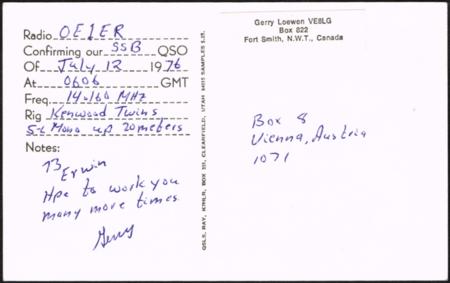 Radio OE1ER
Confirming our SSB QSO
Of July 12 1976
At 0606 GMT
Freq. 14.160 MHz
Rig Kenwood Twins
5-L Mono up 20meters
Notes:
73
Erwin
Hpe to work you
many more times
Gerry
QSLS, RAY, K7HLR, BOX 331, CLEARFIELD, UTAH 84015 SAMPLES 25¢.
Gerry Loewen VE8LG
Box 822
Fort Smith, N.W.T., Canada
Box 8
Vienna, Austria
1071